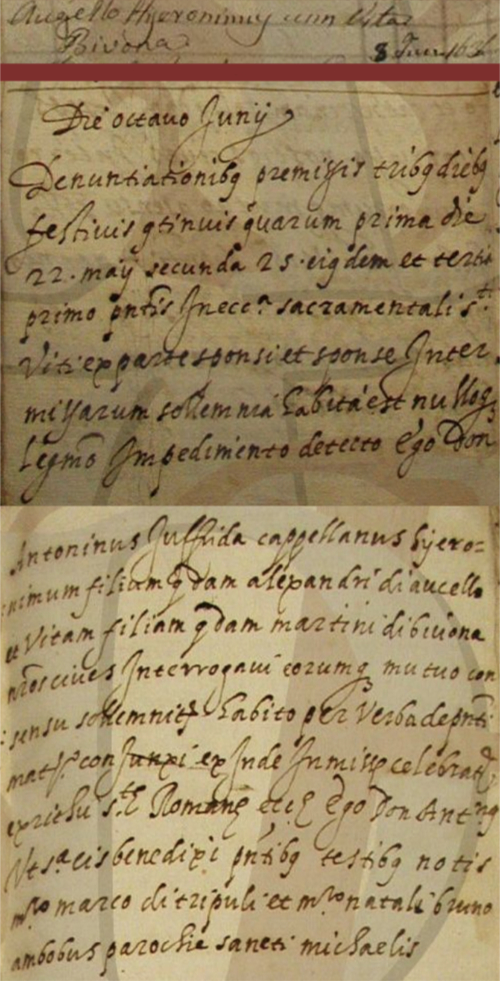 Augello Hyeronimus cum Vita
Bivona 8 Jun 16
Die octavo Junij
Denuntiationibq premissis tribq diebq
festivis qtinuis quarum prima die
22. maij secunda 25. eiqdem et tertia
primo pntis In ecc.a sacramentali s.ti
Viti ex parte sponsi et sponse Inter
missarum sollemnia habita est nulloq
legmo Impedimento detecto Ego Don
Antoninus Juffrida cappellanus hyero=
nimum filium qdam alexandri di aucello
et Vitam filiam qdam martini di bivona
nros cives Interrogavi eorumq mutuo con
sensu sollemnitr habito per Verba de pnti
matr.o conjunxi ex Inde In missa celebrat
ex richu s.te Romane eccl Ego Don Ant.nq
Vt s.a eis benedixi pntibq testibq notis
m.ro marco di tripuli et m.ro natali bruno
ambobus parochie sancti michaelis